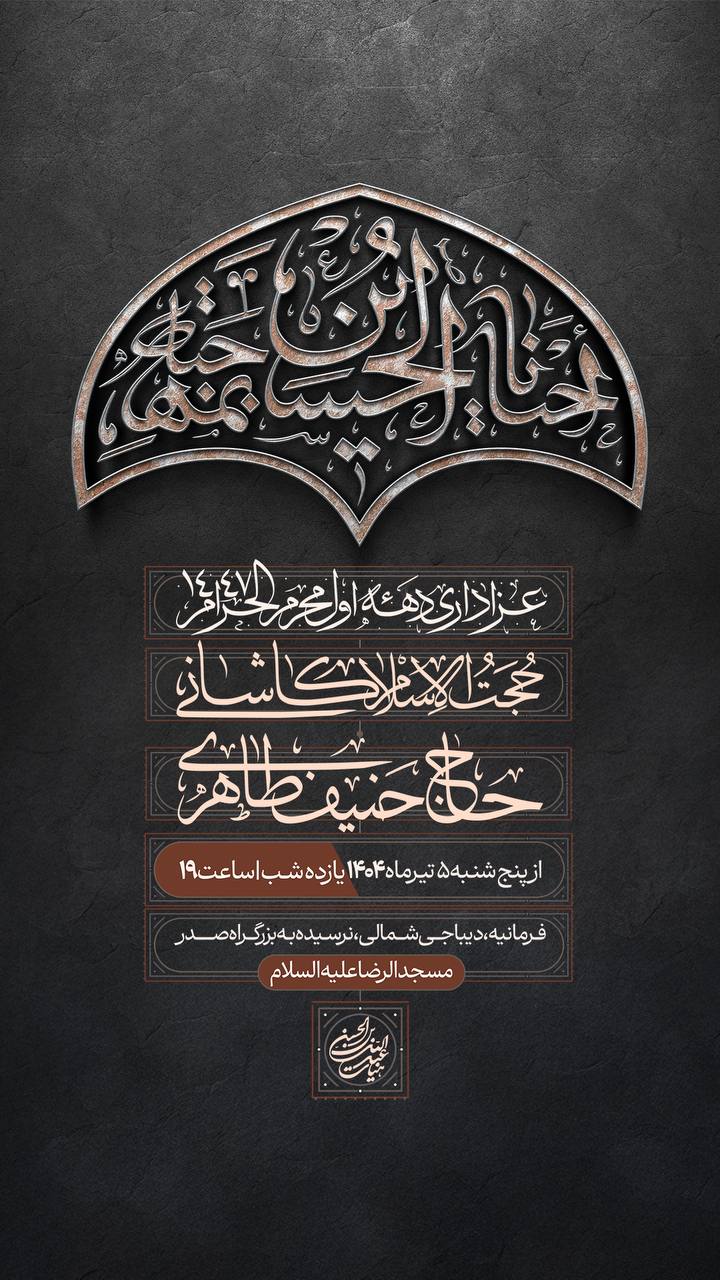 عزاداری دهه اول محرم الحرام ۱۴۴۷
حُجَتُ الاِسْلام کاشانی
حاج حَنیف طاهری
از پنج شنبه ۵ تیر ماه ۱۴۰۴ یازده شب | ساعت ۱۹
فرمانیه، دیباجی شمالی، نرسیده به بزرگراه صدر
مسجد الرضا علیه السلام